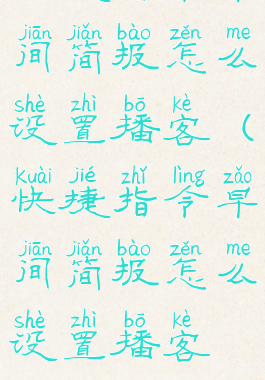 jiān jiǎn bào zěn me
间简报怎么
shè zhì bō kè
设置播客（
kuài jié zhǐ lìng zǎo
快捷指令早
jiān jiǎn bào zěn me
间简报怎么
shè zhì bō kè
设置播客